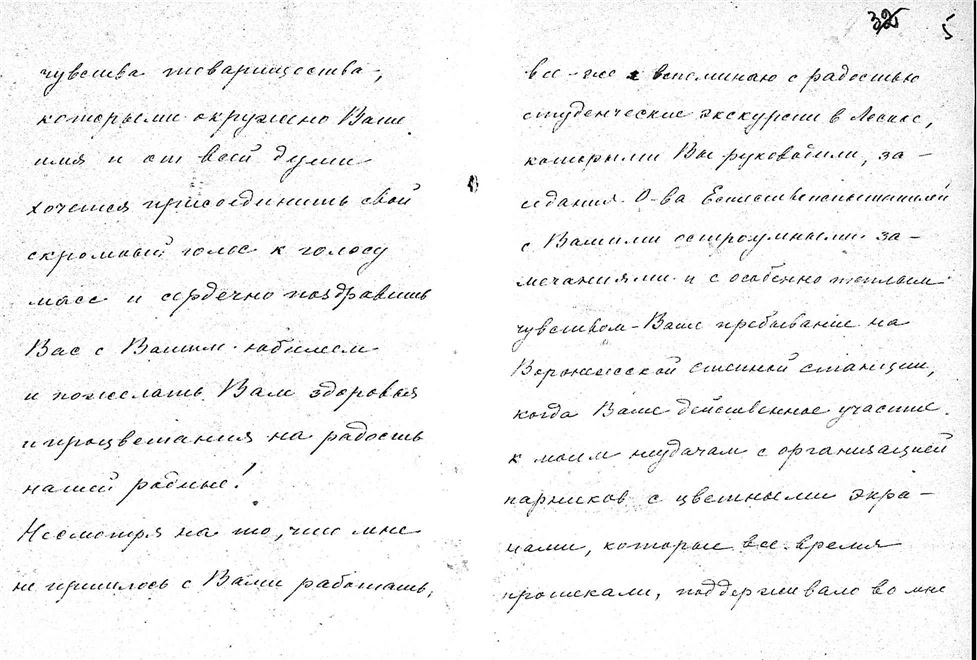 32 5
чувства товарищества,
которыми окружено Ваше
имя и от всей души
хочется присоединить свой
скромный голос к голосу
масс и сердечно поздравить
Вас с Вашим юбилеем
и пожелать Вам здоровья
и процветания на радость
нашей родине!
Несмотря на то, что мне
не пришлось с Вами работать,
все-же я вспоминаю с радостью
студенческие экскурсии в Лесное,
которыми Вы руководили, за-
седания О-ва Естествоиспытателей
с Вашими остроумными за-
мечаниями и с особенно теплым
чувством - Ваше пребывание на
Воронежской степной станции,
когда Ваше действенное участие
к моим неудачам с организацией
парников с цветными экра-
нами, которые все время
протекали, поддерживало во мне